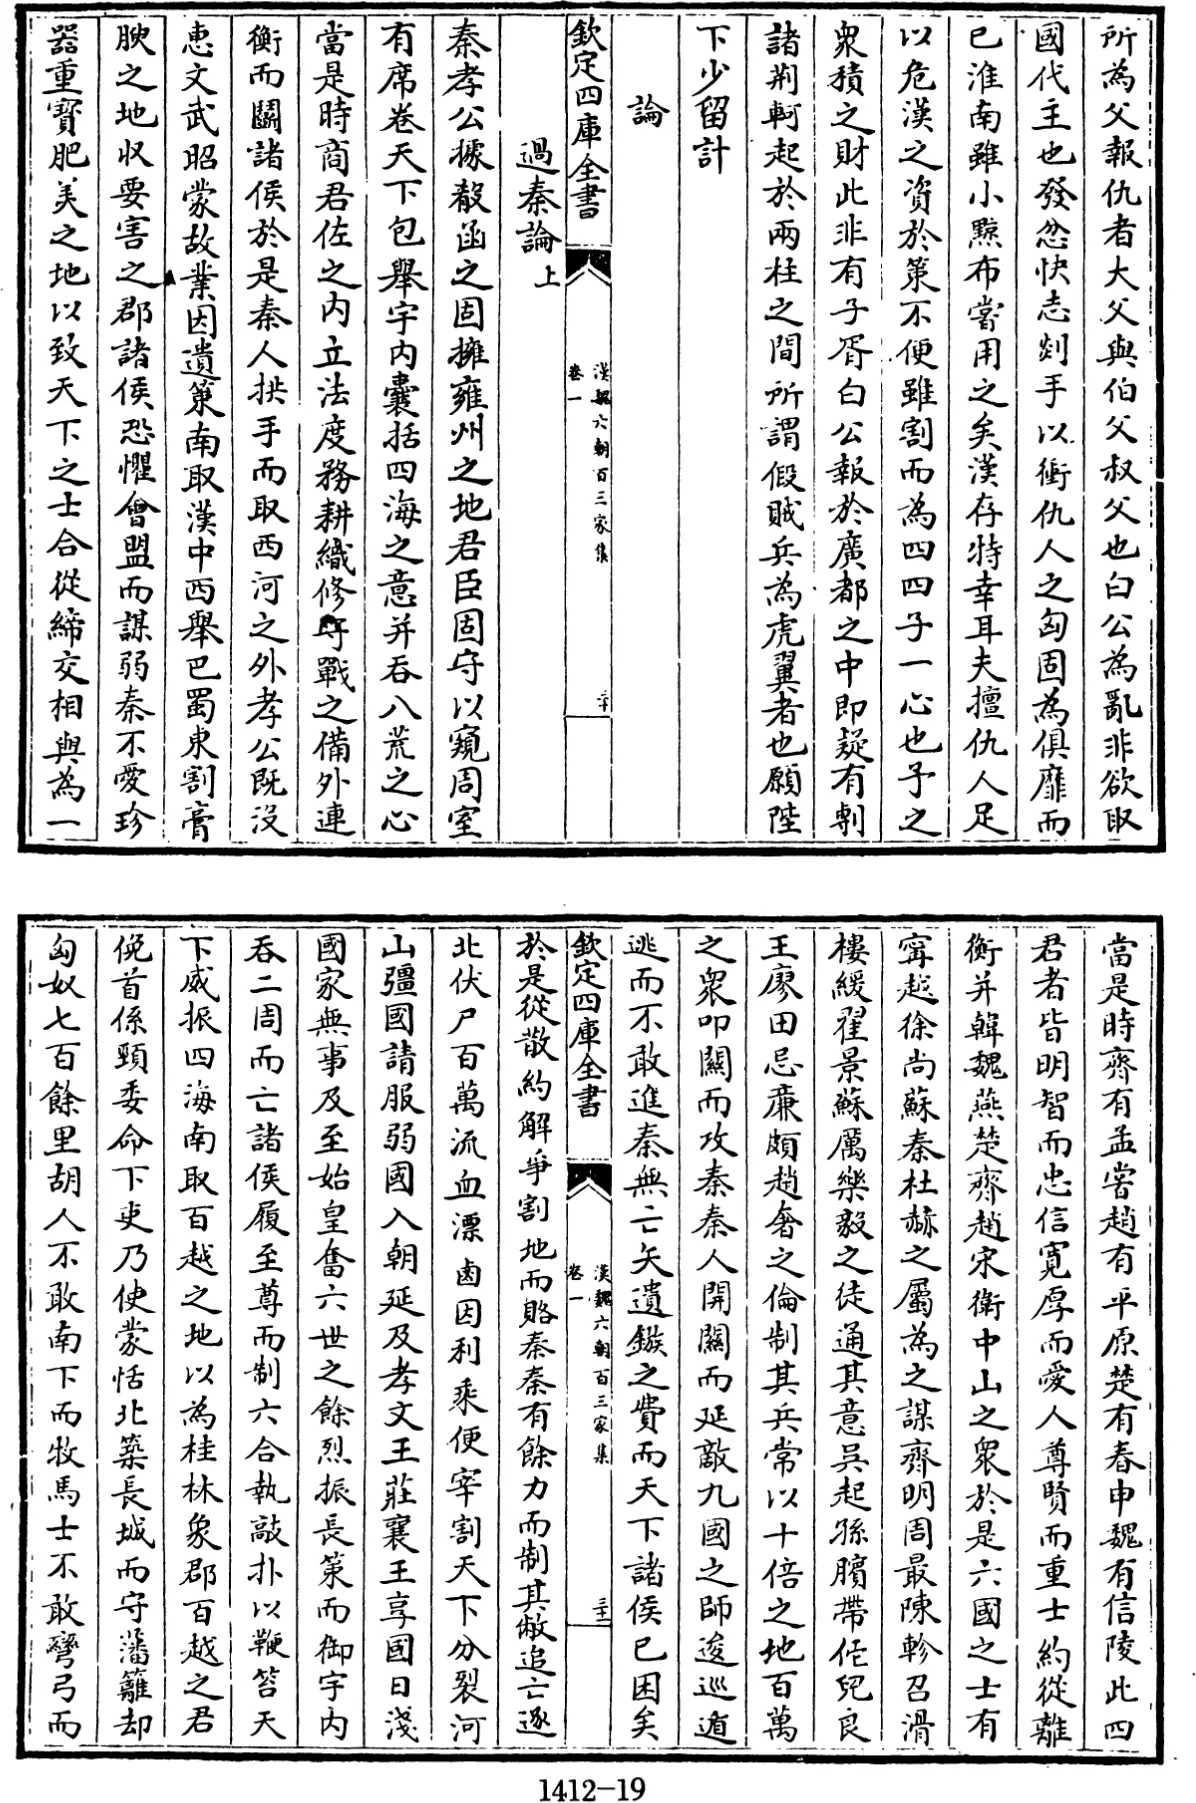 所為父報仇者大父與伯父叔父也白公為亂非欲取
國代主也發忿快志剡手以衝仇人之匈固為俱靡而
已淮南雖小黥布嘗用之矣漢存特幸耳夫擅仇人足
以危漢之資於策不便雖割而為四四子一心也予之
衆積之財此非有子胥白公報於廣都之中即疑有剸
諸荆軻起於兩柱之間所謂假賊兵為虎翼者也願陛
下少留計
論
欽定四庫全書
漢魏六朝百三家集
卷一
二十
過秦論上
秦孝公據殽函之固擁雍州之地君臣固守以窺周室
有席卷天下包舉宇内囊括四海之意并吞八荒之心
當是時商君佐之内立法度務耕織修守戰之備外連
衡而鬭諸侯於是秦人拱手而取西河之外孝公既没
惠文武昭蒙故業因遺策南取漢中西舉巴蜀東割膏
腴之地收要害之郡諸侯恐懼會盟而謀弱秦不愛珍
器重寶肥美之地以致天下之士合從締交相與為一
當是時齊有孟嘗趙有平原楚有春申魏有信陵此四
君者皆明智而忠信寛厚而愛人尊賢而重士約從離
衡并韓魏燕楚齊趙宋衛中山之衆於是六國之士有
甯越徐尚蘇秦杜赫之屬為之謀齊明周最陳軫召滑
樓緩翟景蘇厲樂毅之徒通其意吳起孫臏帶佗兒良
王廖田忌亷頗趙奢之倫制其兵常以十倍之地百萬
之衆叩關而攻秦秦人開關而延敵九國之師逡巡遁
逃而不敢進秦無亡矢遺鏃之費而天下諸侯已困矣
欽定四庫全書
漢魏六朝百三家集
卷一
二十一
於是從散約解爭割地而賂秦秦有餘力而制其敝追亡逐
北伏尸百萬流血漂鹵因利乘便宰割天下分裂河
山彊國請服弱國入朝延及孝文王莊襄王享國日淺
國家無事及至始皇奮六世之餘烈振長策而御宇内
吞二周而亡諸侯履至尊而制六合執敲扑以鞭笞天
下威振四海南取百越之地以為桂林象郡百越之君
俛首係頸委命下吏乃使蒙恬北築長城而守藩籬却
匈奴七百餘里胡人不敢南下而牧馬士不敢彎弓而
1412-19